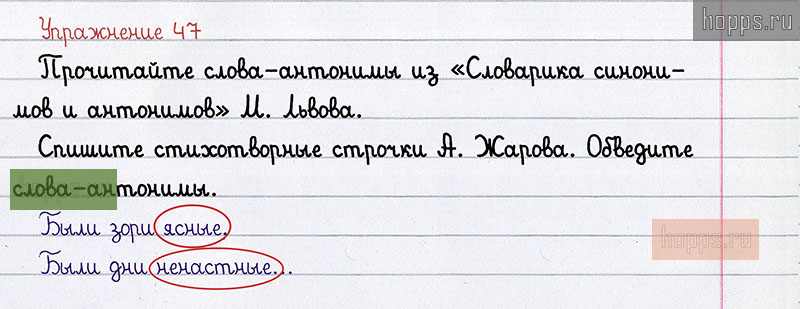 hopps.ru
Упражнение 47
Прочитайте слова-антонимы из «Словарика синони-
мов и антонимов» М. Львова.
Спишите стихотворные строчки А. Жарова. Обведите
слова-антонимы.
Были зори ясные,
Были дни ненастные...
hopps.ru